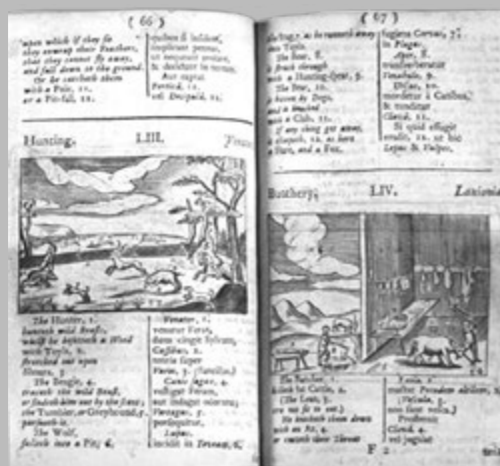 ( 66 )
upon which if they sit
they enwrap their Feathers,
that they cannot fly away,
and fall down to the ground.
Or he catcheth them
with a Pole, 11.
or a Pitfall, 12.
quibus si insident,
implicant pennas,
ut nequeant avolare,
& decidunt in terram.
Aut captat
Pertica, 11.
vel Decipula, 12.
Hunting.
LIII.
The Hunter, 1.
hunteth wild Beasts,
whilst he besetteth a Wood
with Toyls, 2.
stretched out upon
Shears, 3
The Beagle, 4.
tracketh the wild Beast,
or findeth him out by the scent;
the Tumbler, or Greyhound, 5.
pursueth it.
The Wolf,
falleth into a Pit; 6.
Venator, 1.
venatur Feras,
dum cingit Sylvam,
Cassibus, 2.
tentis super
Varos, 3. (furcillas.)
Canis sagax, 4.
vestigat Feram,
aut indagat odoratu;
Vertagus, 5.
persequitur.
Lupus,
incidit in Foveam, 6.
( 67 )
the Stag, 7. as he runneth away
into Toyls.
The Boar, 8.
is struck through
with a Hunting-spear, 9.
The Bear, 10.
is bitten by Dogs,
and is knocked
with a Club, 11.
If any thing get away,
it escapeth, 12. as here
a Hare, and a Fox.
fugiens Cervus, 7.
in Plagas.
Aper, 8.
transverberatur
Venabulo, 9.
Ursus, 10.
mordetur à Canibus,
& tunditur
Clavâ, 11.
Si quid effugit
evadit, 12. ut hic
Lepus & Vulpes.
Butchery.
LIV.
Lanionia
The Butcher, 1.
killeth fat Cattle, 2.
(The Lean, 3.
are not fit to eat.)
He knocketh them down
with an Ax, 4.
or cutteth their Throat
Lanio, 1.
mactat Pecudem altilem, 2.
(Vescula, 3.
non sunt esculenta.)
Prosternit
Clavâ, 4.
vel jugulat
F 2